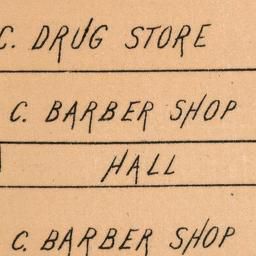 C. DRUG STORE
C. BARBER SHOP
HALL
C. BARBER SHOP